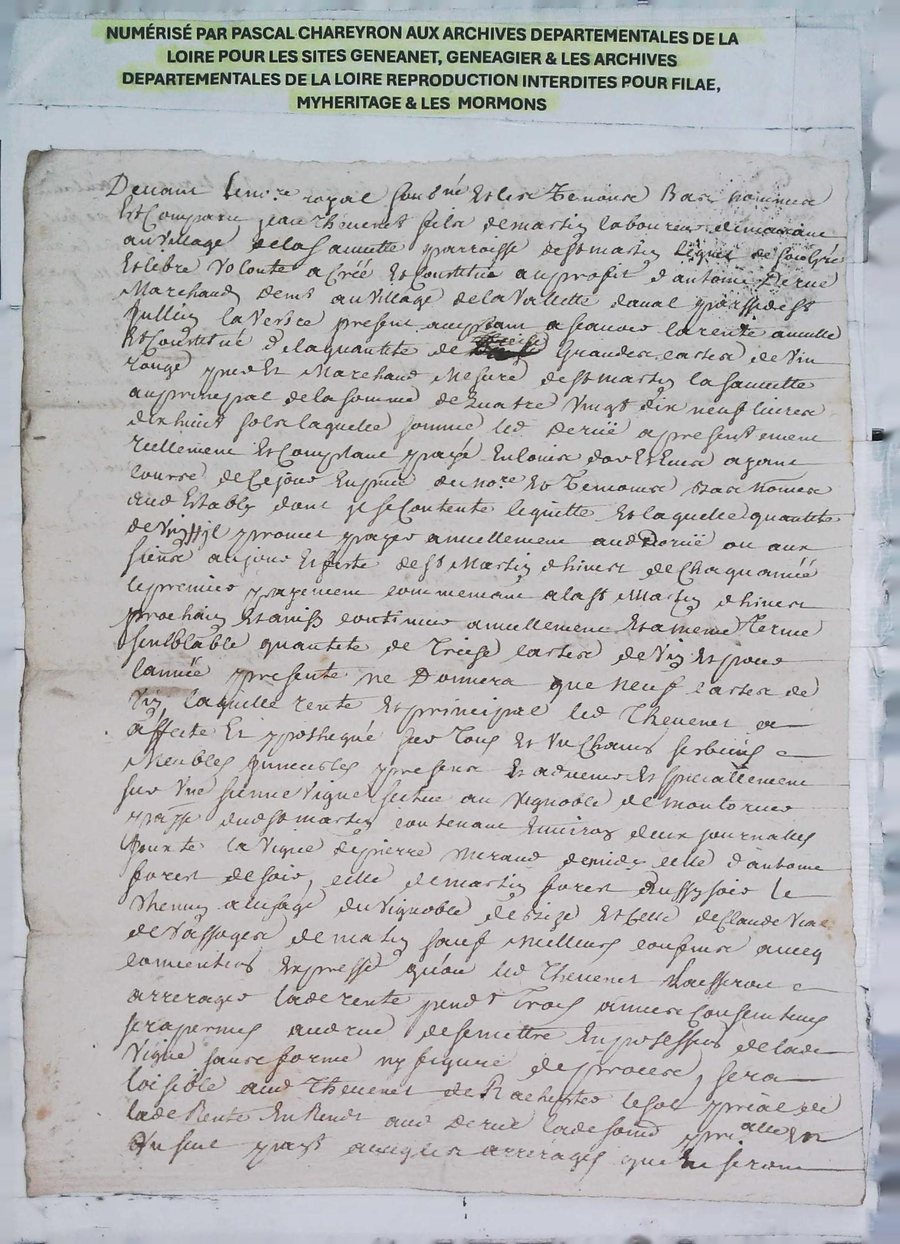 NUMÉRISÉ PAR PASCAL CHAREYRON AUX ARCHIVES DEPARTEMENTALES DE LA
LOIRE POUR LES SITES GENEANET, GENEAGIER & LES ARCHIVES
DEPARTEMENTALES DE LA LOIRE REPRODUCTION INTERDITES POUR FILAE,
MYHERITAGE & LES MORMONS
Devant le no.re royal soubné et les temoins bas nommes
est comparu jean Thevenet fils de martin laboureur demeurant
au village de la sauvette parroisse de st martin lequel de son gré
et libre volonte a créé et constitué au profit d'antoine Derué
Marchand demt au village de la Valette d'aval psse de st
Jullien la Vestre present acceptant a scavoir la rente annuelle
et constitué de la quantité de grandes lastes de vin
rouge pur et Marchand Mesure de st martin la sauvette
au principal de la somme de quatre vingt dix neuf livres
dix huict sols laquelle somme led Derué a presentement
reellement et comptant payé en louis d'or et escus ayant
course de ce jour en pnce du no.re et temoins bas nommes
aud estably dont il se contente le quitte et laquelle quantité
de vin il promet payer annuellement aud Derué ou aux
siens au jour et feste de st Martin d'hiver de chaqu'année
le premier payement commencant a la st Martin d'hiver
prochain et ainsy continuer annuellement et a meme terme
semblable quantité de treise lastes de vin et pour
l'année presente ne donnera que neuf lastes de
vin, laquelle rente et principal led Thevenet a
affecté et ypothequé sur tous et un chacuns ses biens
Meubles immeubles presens et advenir et speciallement
sur une sienne vigne scitue au vignoble de
psse dud st martin contenant environ deux journalles
jouxte la vigne de pierre de midy celle d'antoine
forest de soir, celle de martin forest aussy soir le
chemin a l'usage du vignoble de bize et celle de Claude
de matin sauf meilleurs confins avecq
convention expresse qu'ou led Thevenet laisseroit
arrerager lade rente pendt trois années consecutives
sera permis aud rué de se mettre en possession de lade
vigne sans forme ny figure de proces, sera
loisible aud Thevenet de Rachepter le sol pnpal de
lade Rente en Rendt aud Derué lade somme pnpalle en
un seul payt avecq les arrerages que en seront